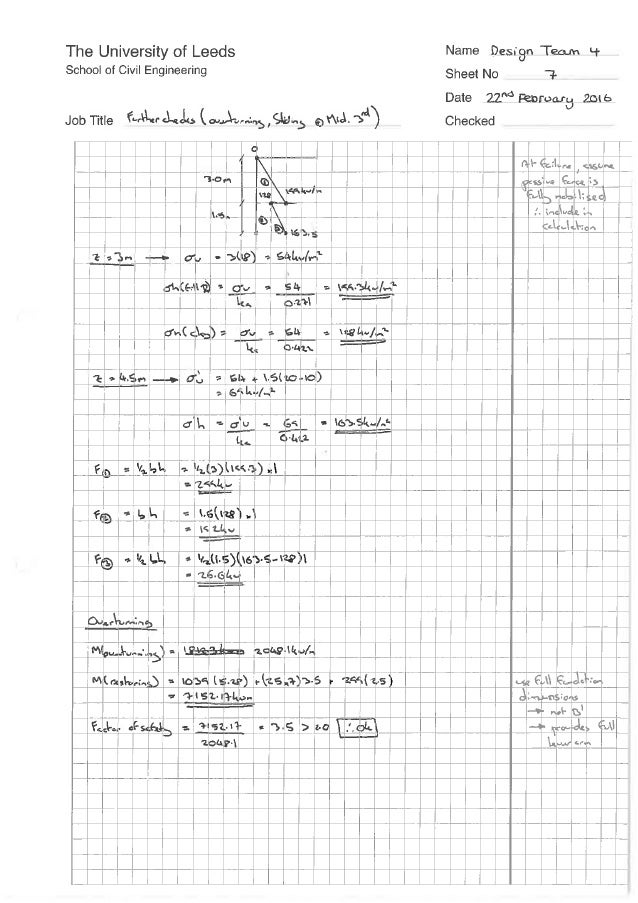 The University of Leeds
School of Civil Engineering
Name Design Team 4
Sheet No 7
Date 22nd February 2016
Job Title Further checks (overturning, Sliding @ Mid. 3rd)
Checked
0
3.0m
1
128
199kN/m
1.5m
2
3
163.5
At failure, assume
passive force is
fully mobilised
∴ include in
calculation
z = 3m → σv = 3(18) = 54kN/m²
σh(fill) = σv/ka = 54/0.271 = 199.3kN/m²
σh(clay) = σv/ka = 54/0.422 = 128kN/m²
z = 4.5m → σ'v = 54 + 1.5(20-10)
= 69kN/m²
σ'h = σ'v/ka = 69/0.422 = 163.5kN/m²
F① = ½bh = ½(3)(199.3)×1
= 299kN
F② = bh = 1.5(128)×1
= 192kN
F③ = ½bh = ½(1.5)(163.5-128)1
= 26.6kN
Overturning
M(overturning) = 2048.1kN/m
M(restoring) = 1039(5.28) + (25.7)3.5 + 299(2.5)
= 7152.17kNm
Factor of safety = 7152.17/2048.1 = 3.5 > 2.0 ∴ ok
use full foundation
dimensions
→ not B'
→ provides full
lever arm